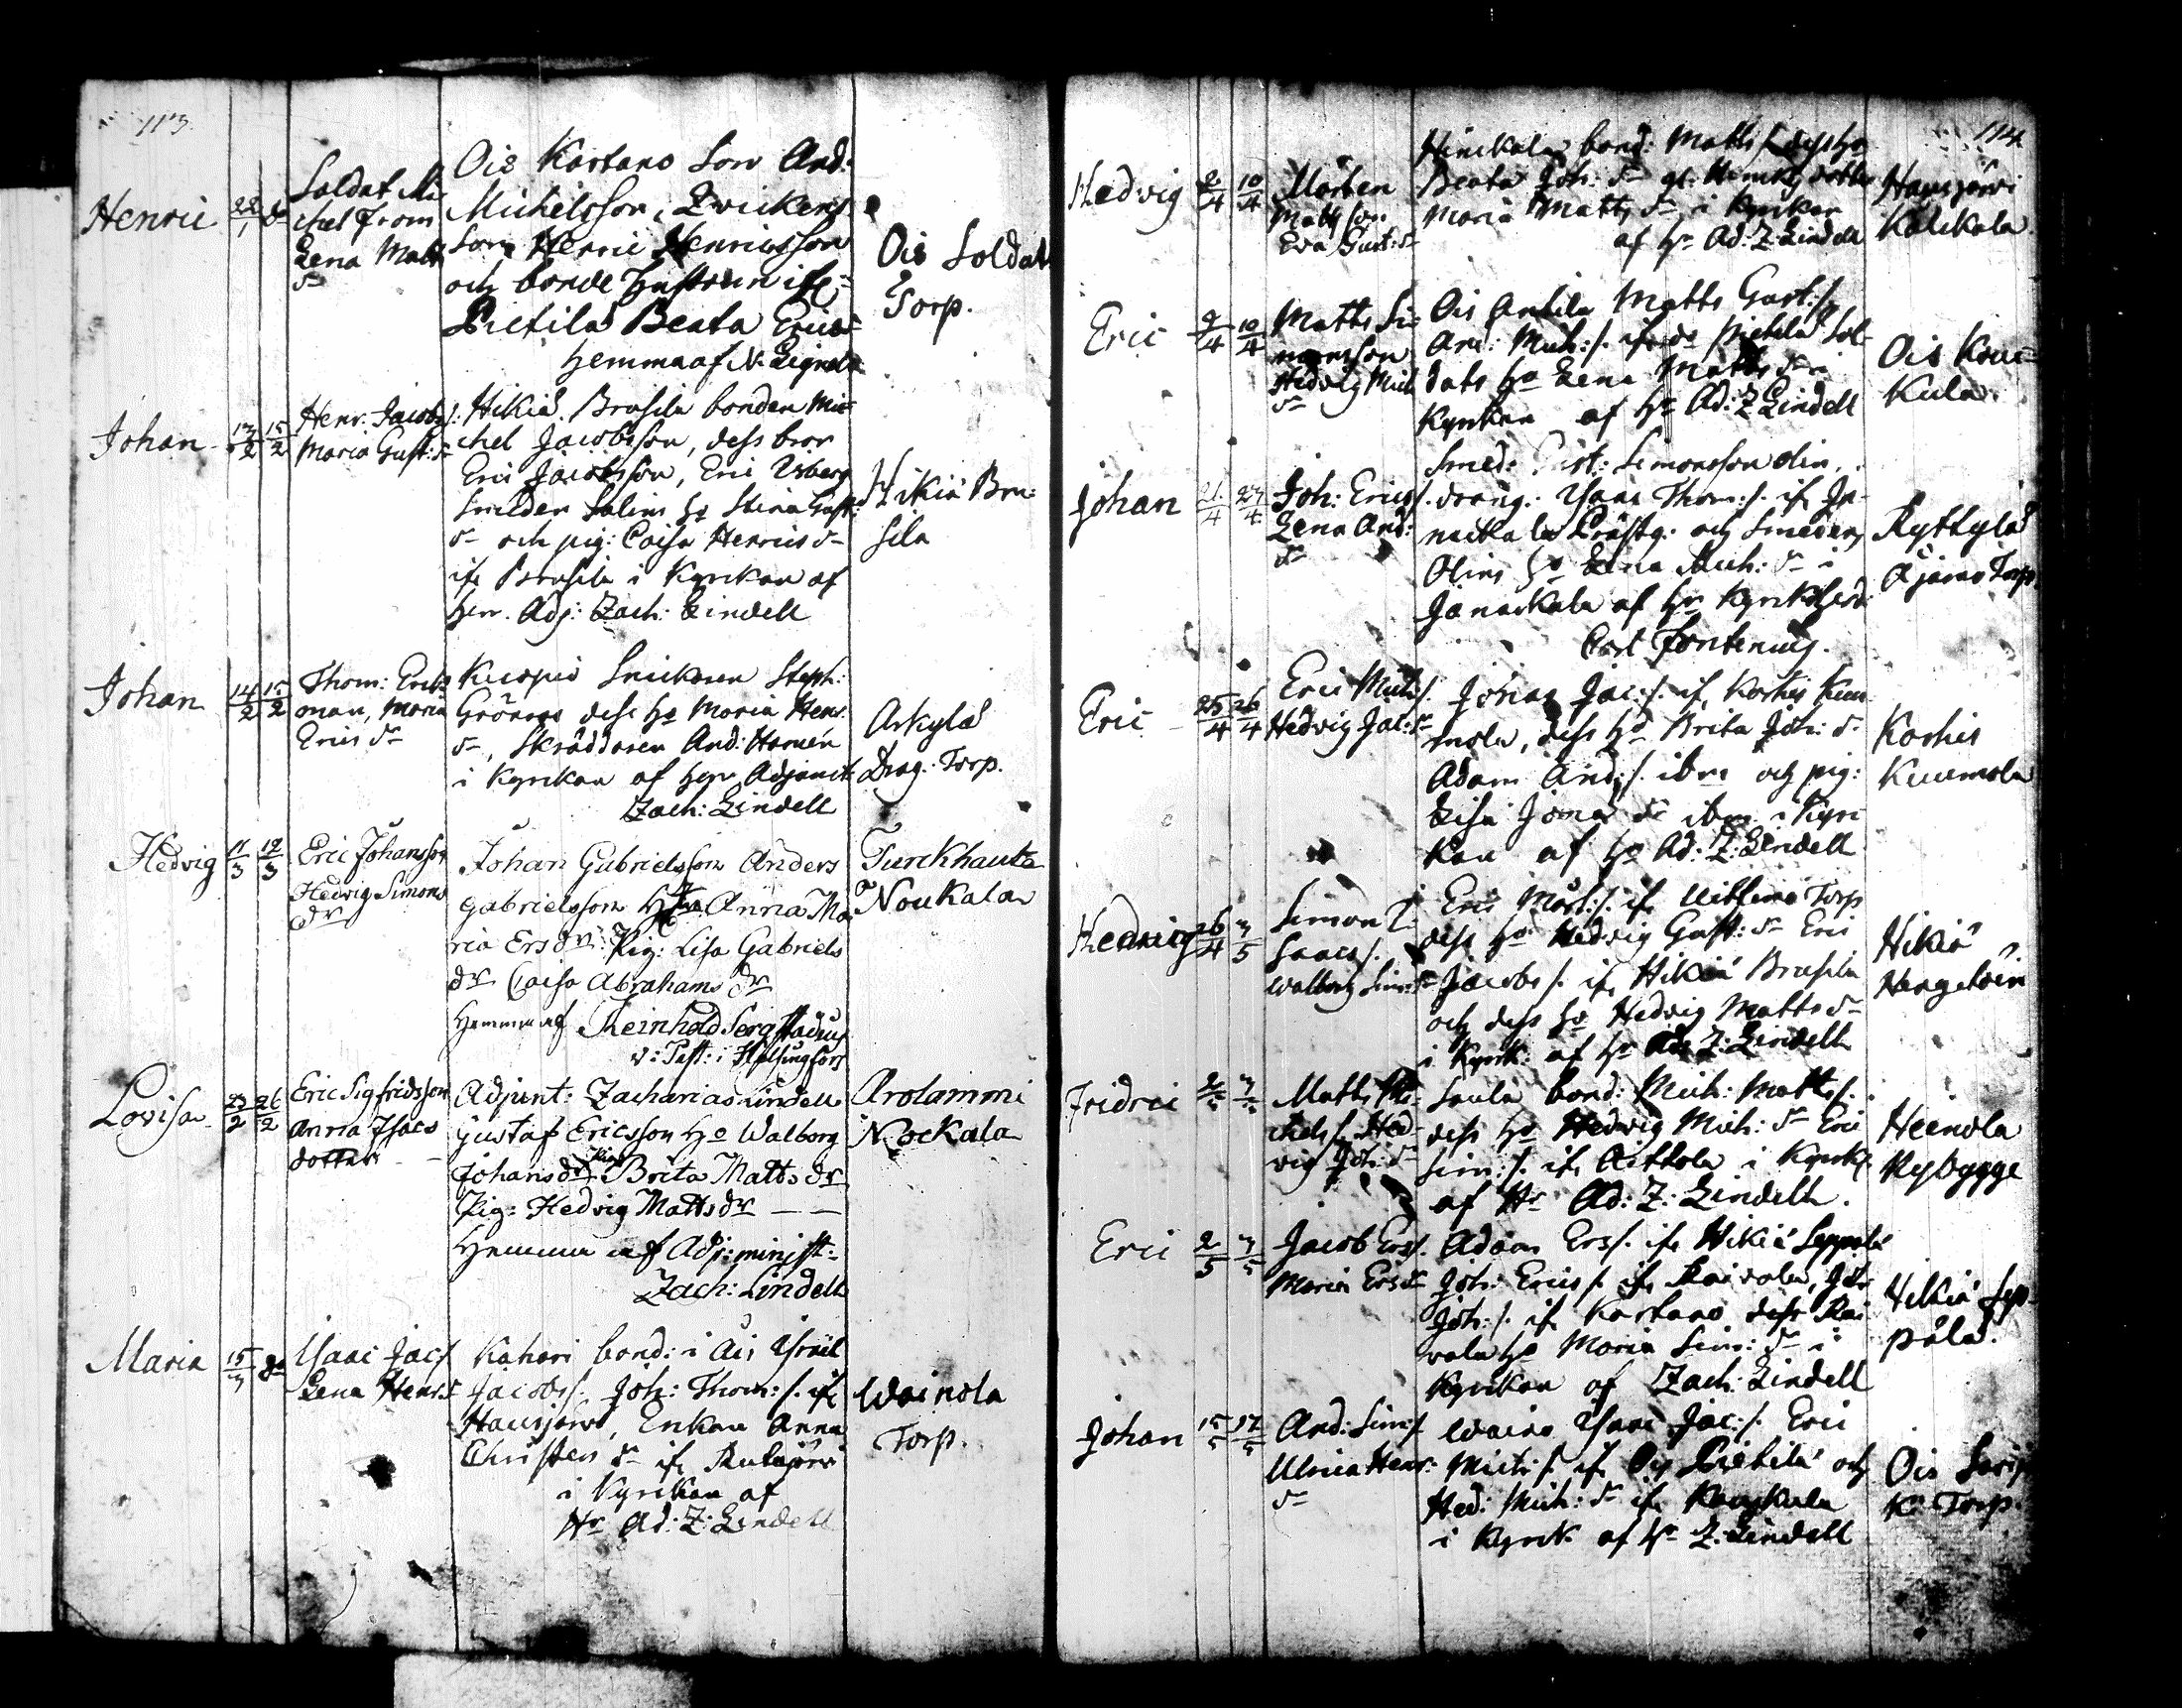 113.
Henric 22/1 do
Soldat Mi
chel From
Lena Matts
dr
Ois Kartano Son And:
Michelsson, Zvickens
Son Henric Henricsson
och bonde hustrun if:
Pietilä Beata Erics
Hemma af N. Lignell
Ois Soldat
Torp.
Johan 13/2 15/2
Henr. Jacobs/:
Maria Gust: dr
Hikiä Brusila bonden Mi
chel Jacobsson, dess bror
Eric Jacobsson, Eric Isberg
Smeden Salins ho Stina Gust:
dr och pig: Caisa Henrics dr
if: Brusila i Kyrckan af
Herr. Adj: Zach: Lindell
Hikiä Bru:
sila
Johan 14/2 15/2
Thom: Erick
man, Maria
Erics dr
Kuopio Snickaren Steph:
Grönroos dess ho Maria Henr:
dr, Skräddaren And:
i Kyrckan af Herr Adjunct
Zach: Lindell
Arkylä
Drag: Torp.
Hedvig 11/3 12/3
Eric Johansson
Hedvig Simons
dr
Johan Gabrielsson Anders
Gabrielsson Anna Ma
ria Ers dr: Pig: Lisa Gabriels
dr Caisa Abrahams dr
Hemma af Reinhold Bergstadius
v: Past: i Helsingfors
Turckhauta
Noukala
Lovisa 23/2 26/2
Eric Sigfridsson
Anna Isacs
dotter
Adjunt: Zacharias Lindell
Gustaf Ericsson Ho Walborg
Johans dr Pig: Brita Matts dr
Pig: Hedvig Matts dr — —
Hemma af Adj: minist:
Zach: Lindell
Arolammi
Nockala
Maria 15/3 do
Isaac Jac:/
Lena Henr: dr
Kahari bond: i Ois Israel
Jacobs/. Joh: Thom:/. if:
Hausjärvi, Enkan Anna
Christers dr if:
i Kyrckan af
Hr Ad: Z: Lindell
Wainola
Torp.
114
Hedvig 2/4 10/4
Mårten
Matts son
Eva Gust: dr
bond: Matts
Beata Joh: dr
Maria Matts dr i Kyrckan
af Hr Ad: Z: Lindell
Hausjärvi
Kalckala
Eric 9/4 10/4
Matts Si=
monsson
Hedvig Mich
dr
Ois Antila Matts Gust:/.
And: Mich:/. if: do Pietilä Sol-
dats ho Lena Matts dr i
Kyrckan af Hr Ad: Z Lindell
Ois Kouc=
kula.
Johan 21/4 23/4
Joh: Erics/.
Lena And:
dr
Smed: Gust: Simonsson Olin,
dräng: Isaac Thom:/. if: Ja-
nackala Prästg: och Smeden
Olins ho Lena Mich: dr i
Janackala af Hr Kyrckoherd:
Carl Fontenius.
Ryttylä
Äjämo Torp
Eric 25/4 26/4
Eric Mich:/.
Hedvig Jac: dr
Jonas Jac:/. if: Korhis Kuu
mola, dess ho Brita Joh: dr
Adam And:/. ibm och pig:
Lisa Jonas dr ibm i Kyrc
kan af Hr Ad: Z: Lindell
Korhis
Kuumola
Hedvig 26/4 3/5
Simon I
saacs/.
Walborg Sim: dr
Eric Mårt:/. if: Torp
dess ho Hedvig Gust: dr Eric
Jacobs/. if: Hikiä Brusila
och dess ho Hedvig Matts dr
i Kyrck: af Hr Ad: Z: Lindell
Hikiä
Fridric 2/5 3/5
Matts Mi:
chels/. Hed-
vig Joh: dr
Saula bond: Mich: Matts/.
dess ho Hedvig Mich: dr Eric
Sim:/. if: Aittola i Kyrck:
af Hr Ad: Z: Lindell.
Heinola
Nybygge
Eric 2/5 3/5
Jacob Ers/.
Maria Ers dr
Adam Ers/. if: Hikiä Seppälä
Joh: Erics/. if: Raivola, Joh:
Joh:/. if: Kartano, dess Rai
vola ho Maria Sim: dr i
Kyrckan af Zach: Lindell
Hikiä Sep-
pälä.
Johan 15/5 17/5
And: Sim:/.
Ulrica Henr:
dr
Waino Isaac Jac:/. Eric
Mich:/. if: Ois Pietilä och
Hed: Mich: dr if:
i Kyrck af Hr Z: Lindell
Ois
K: Torp.